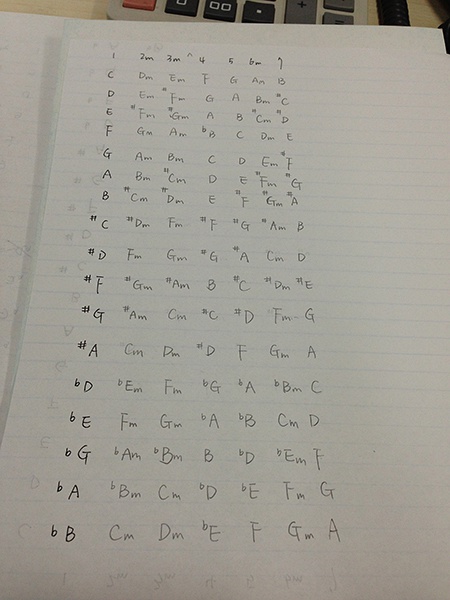 1 2m 3m 4 5 6m 7
C Dm Em F G Am B
D Em #Fm G A Bm #C
E #Fm #Gm A B #Cm #D
F Gm Am bB C Dm E
G Am Bm C D Em #F
A Bm #Cm D E #Fm #G
B #Cm #Dm E #F #Gm #A
#C #Dm Fm #F #G #Am B
#D Fm Gm #G #A Cm D
#F #Gm #Am B #C #Dm #E
#G #Am Cm #C #D Fm G
#A Cm Dm #D F Gm A
bD bEm Fm bG bA bBm C
bE Fm Gm bA bB Cm D
bG bAm bBm B bD bEm F
bA bBm Cm bD bE Fm G
bB Cm Dm bE F Gm A